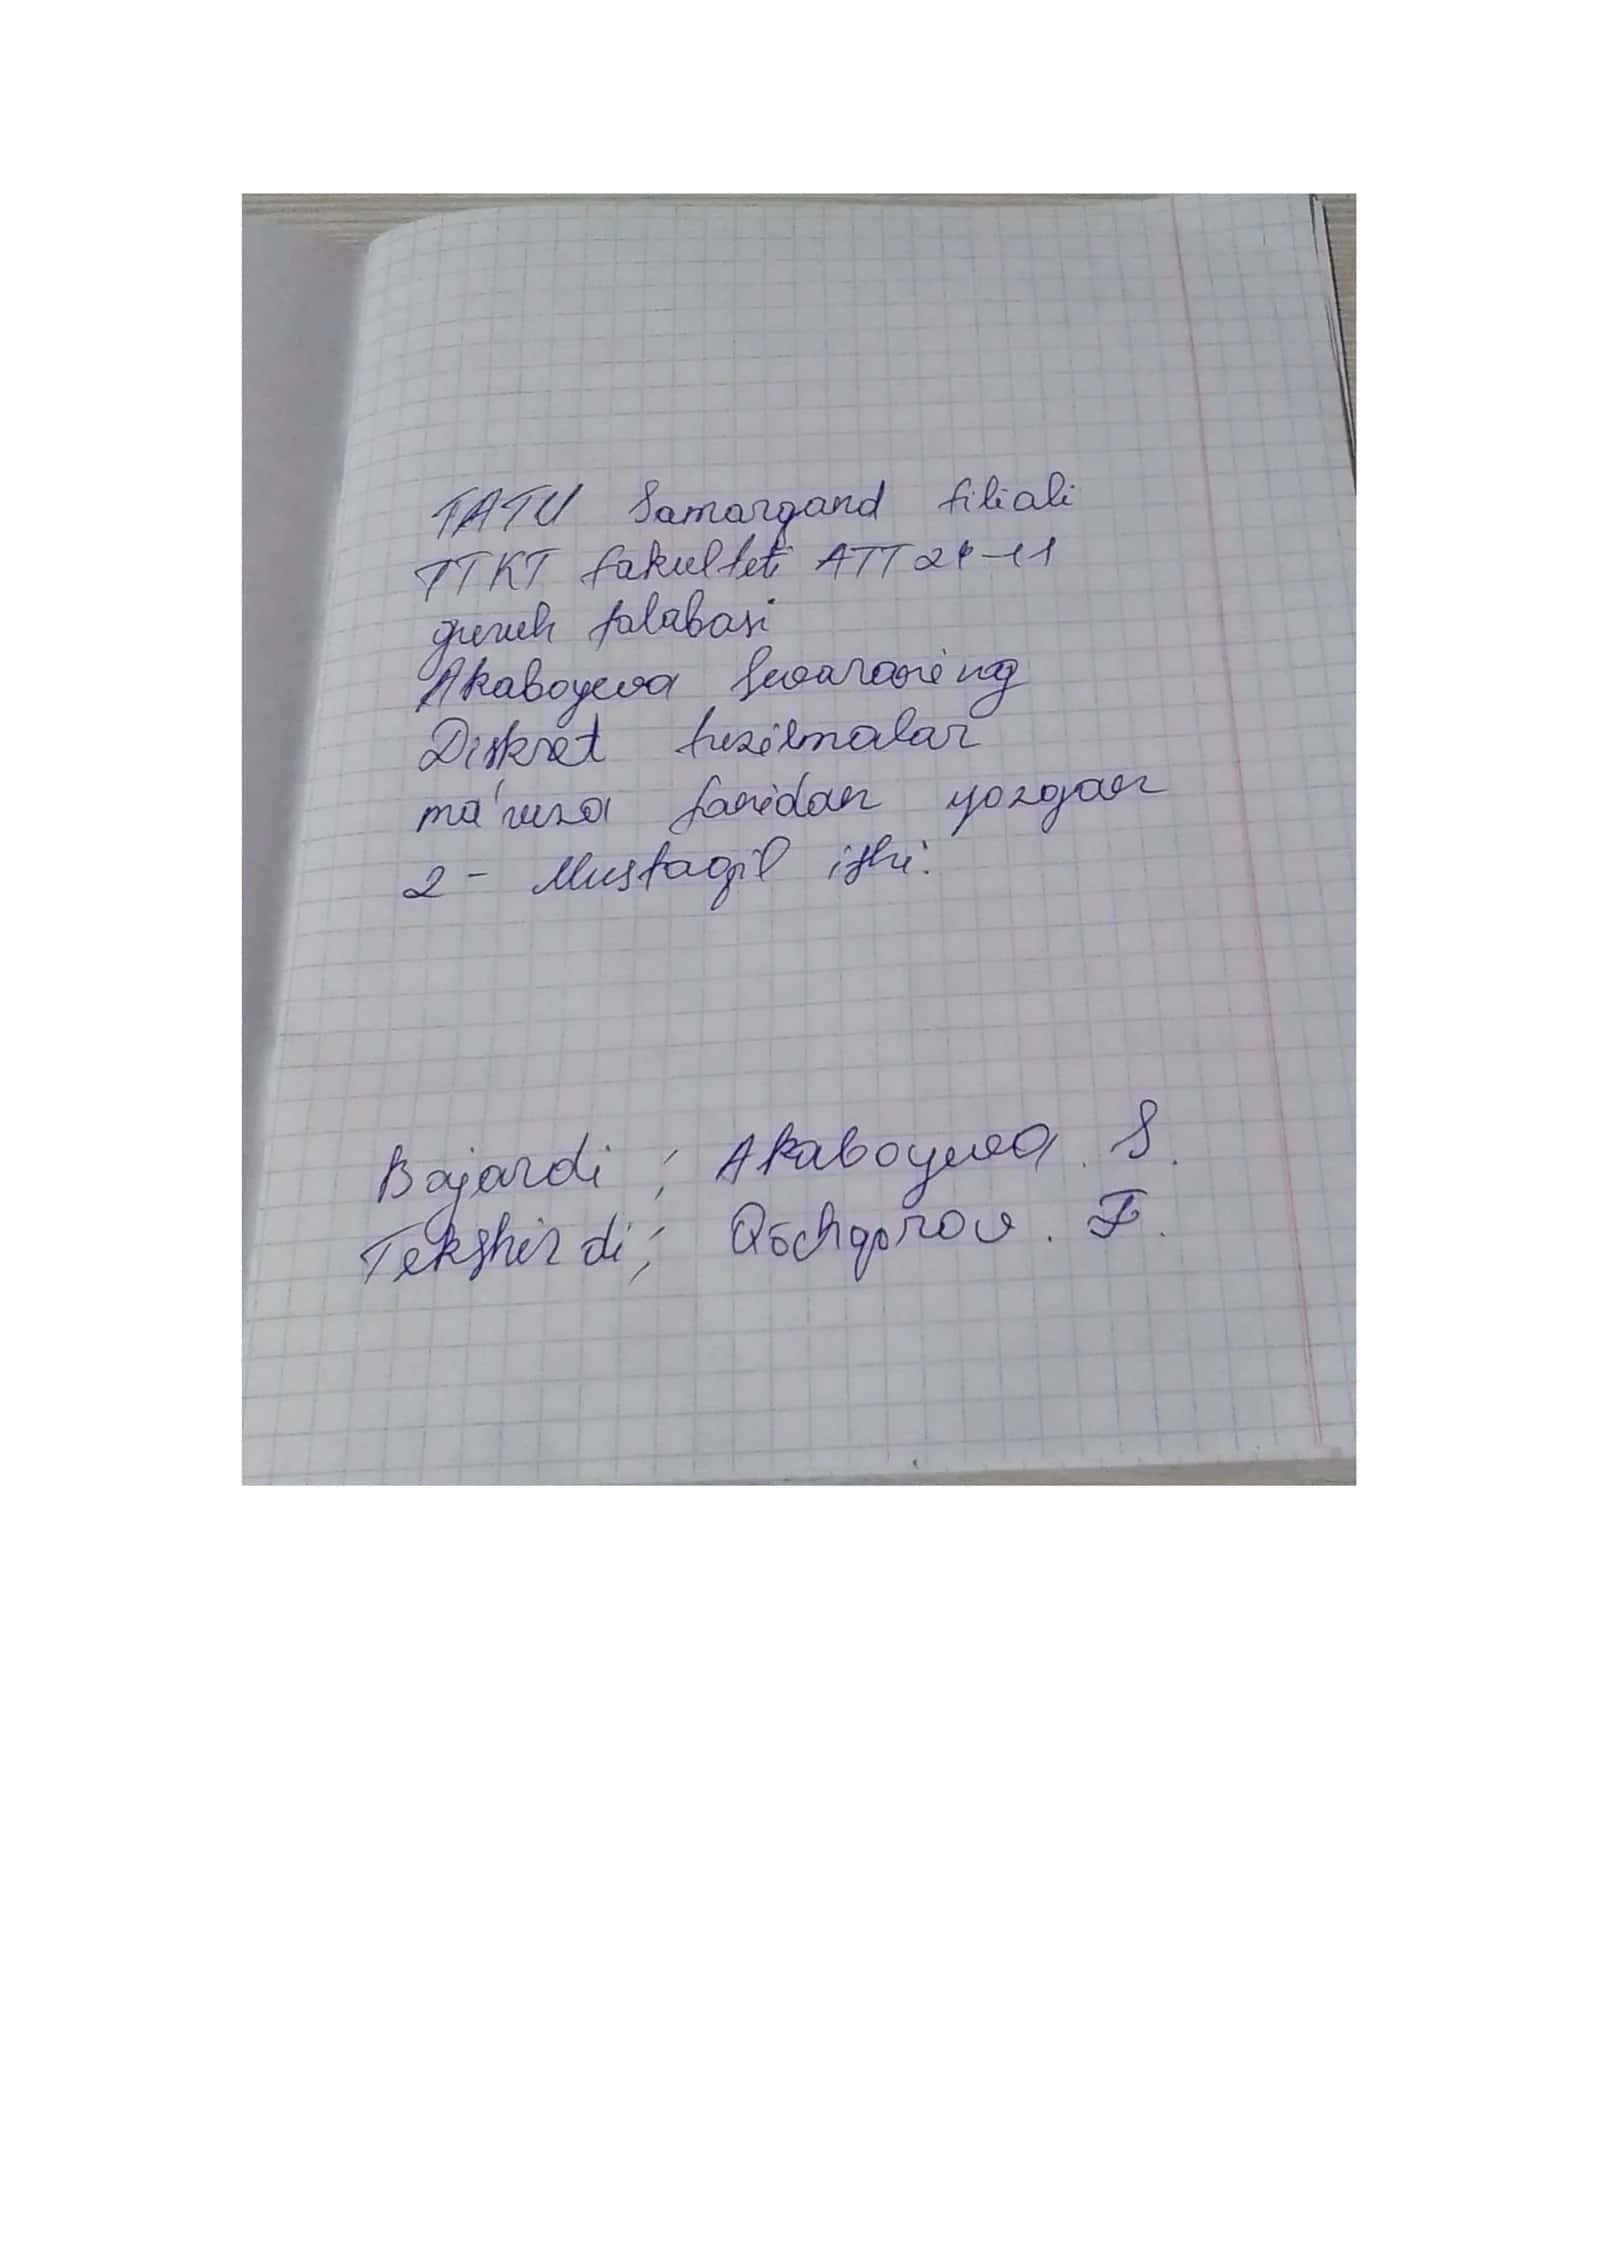 TATU Samarqand filiali
TTKT fakulteti ATT 21-11
guruh talabasi
Akaboyeva
Diskret tuzilmalar
ma'ruza fanidan yozgan
2 - Mustaqil ishi.
Bajardi ; Akaboyeva . S.
Tekshirdi ; Qōchqorov . F.